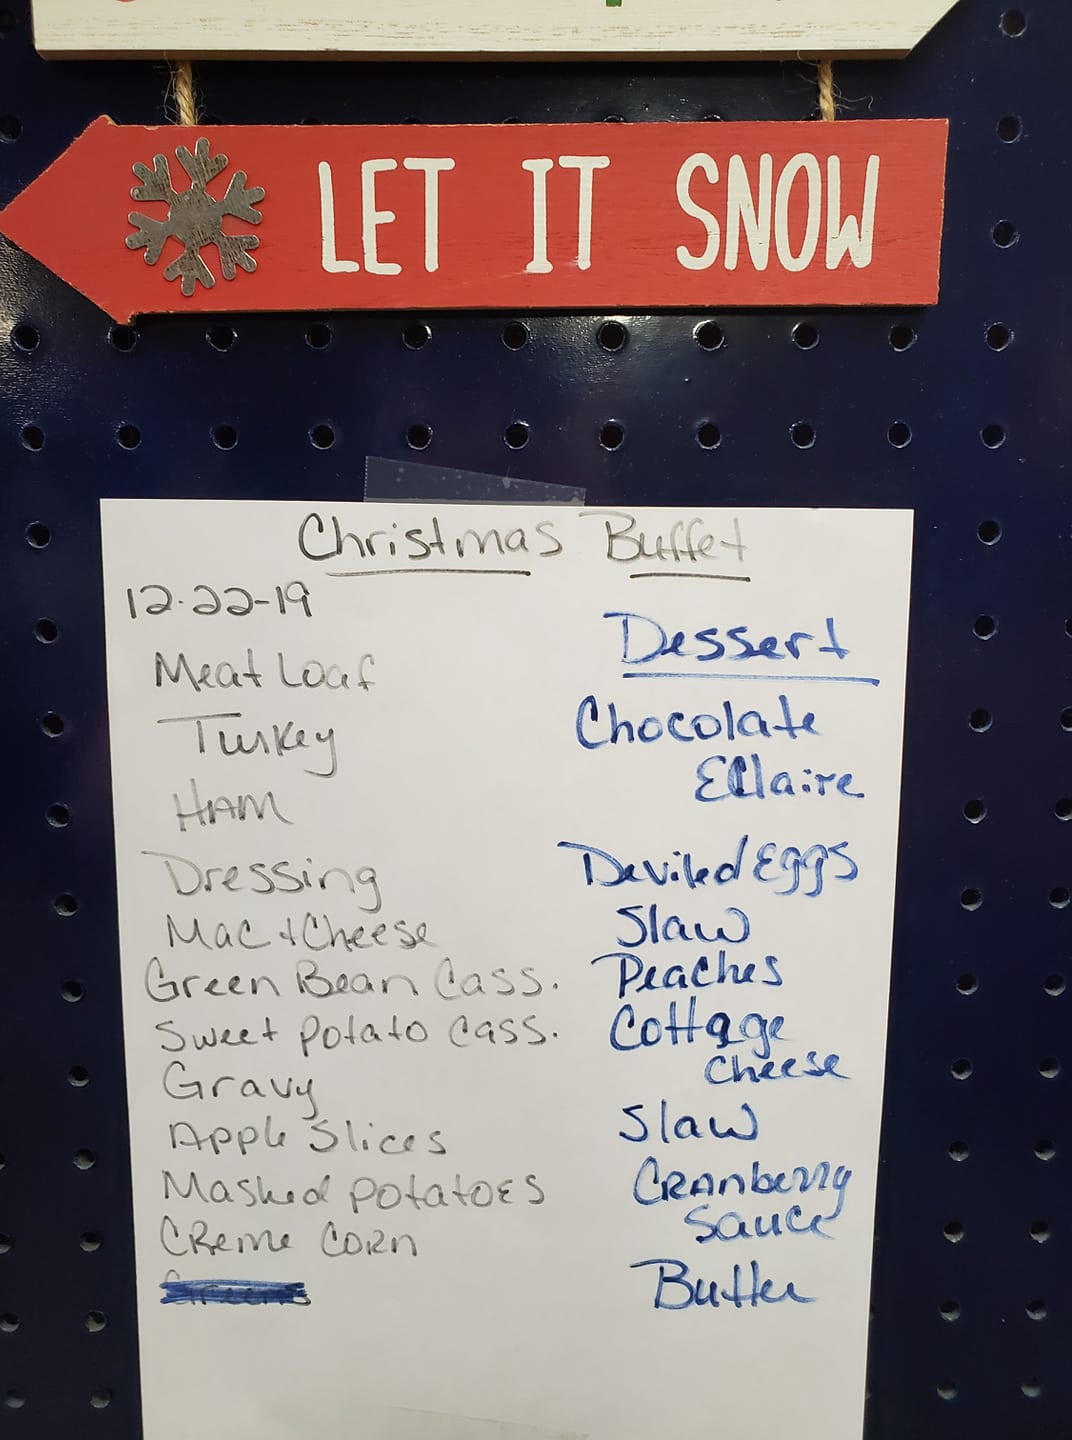 LET IT SNOW
Christmas Buffet
12-22-19
Meat Loaf
Turkey
HAM
Dressing
Mac + Cheese
Green Bean Cass.
Sweet potato cass.
Gravy
Apple Slices
Mashed potatoes
CReme CoRn
Dessert
Chocolate
EClaire
Deviled Eggs
Slaw
Peaches
Cottage
cheese
Slaw
CRANberry
Sauce
Butter